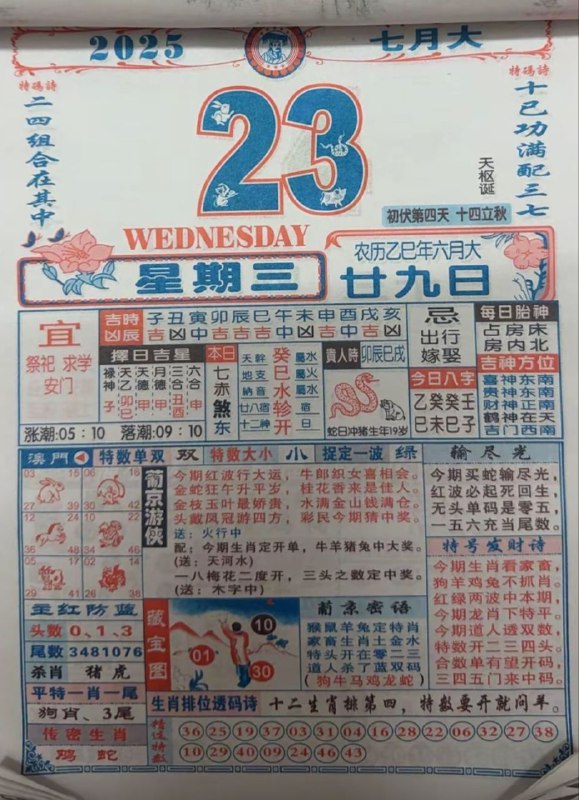 2025
七月大
特碼詩
二四組合在其中
23
特碼詩
十已功满配三七
天枢诞
初伏第四天 十四立秋
WEDNESDAY
星期三
农历乙巳年六月大
廿九日
宜
祭祀 求学
安门
涨潮:05:10 落潮:09:10
吉時 子丑寅卯辰巳午未申酉戌亥
凶辰 吉凶中吉吉吉凶中吉中凶中
擇日吉星
禄神 天乙 天德 月德 三合 六合
子 卯巳 甲 甲 丑酉 申
本日
七赤煞东
天幹 癸 屬水
地支 巳 屬火
納音 水 屬水
廿八宿 轸 宿
十二神 开 日
貴人時 卯辰巳戌
蛇日冲猪生年19岁
忌
出行
嫁娶
今日八字
乙癸癸壬
巳未巳子
每日胎神
占房床
房内北
吉神方位
喜神东南
贵神东南
财神正南
鹤神在天
吉门西南
澳門 特数单双 双 特数大小 小 捉定一波 绿
03 15 27 39
06 16 30 42
12 24 36 48
10 22 34 46
05 17 29 41
08 20 32 44
主红防蓝
头数 0、1、3
尾数 3481076
杀肖 猪虎
平特一肖一尾
狗肖、3尾
传密生肖
鸡 蛇
葡京游侠
今期红波行大运，牛郎织女喜相会。
金蛇狂午升平岁，桂花香来是佳人。
金枝玉叶最娇贵，水满金山钱满仓。
头戴凤冠游四方，彩民今期猜中奖。
送：火行中
配：今期生肖定开单，牛羊猪兔中大奖。
(送：天河水)
一八梅花二度开，三头之数定中奖。
(送：木字中)
藏宝图
01
10
30
葡京密语
猴鼠羊兔定特肖
家畜生肖土金水
特头开在零二三
道人杀了蓝双码
(狗牛马鸡龙蛇)
輸尽光
今期买蛇输尽光，
红波必起死回生，
无头单码是零五，
一五六充当尾数。
特号发财诗
今期生肖看家畜，
狗羊鸡兔不抓肖。
红绿两波中本期，
今期龙肖下特平。
今期道人透双数，
特数开二三四头。
合数单有望开码，
三四五门来中码。
生肖排位透码诗 十二生肖排第四，特数要开就问羊。
精选特数
36 25 19 01 03 13 16 44 18 28 22 06 32 27 38
10 29 40 09 24 46 43